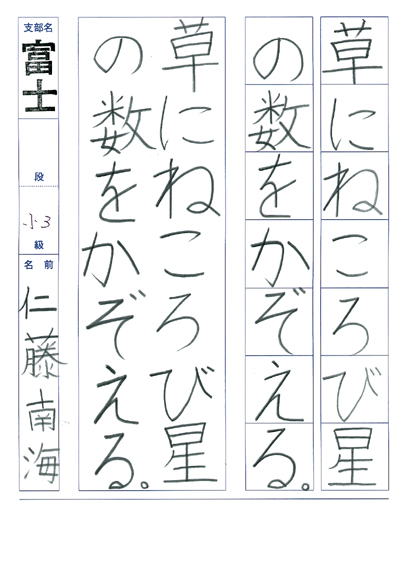 草にねころび星
の数をかぞえる。
草にねころび星
の数をかぞえる。
支部名
富士
段
小3
級
名前
仁藤南海